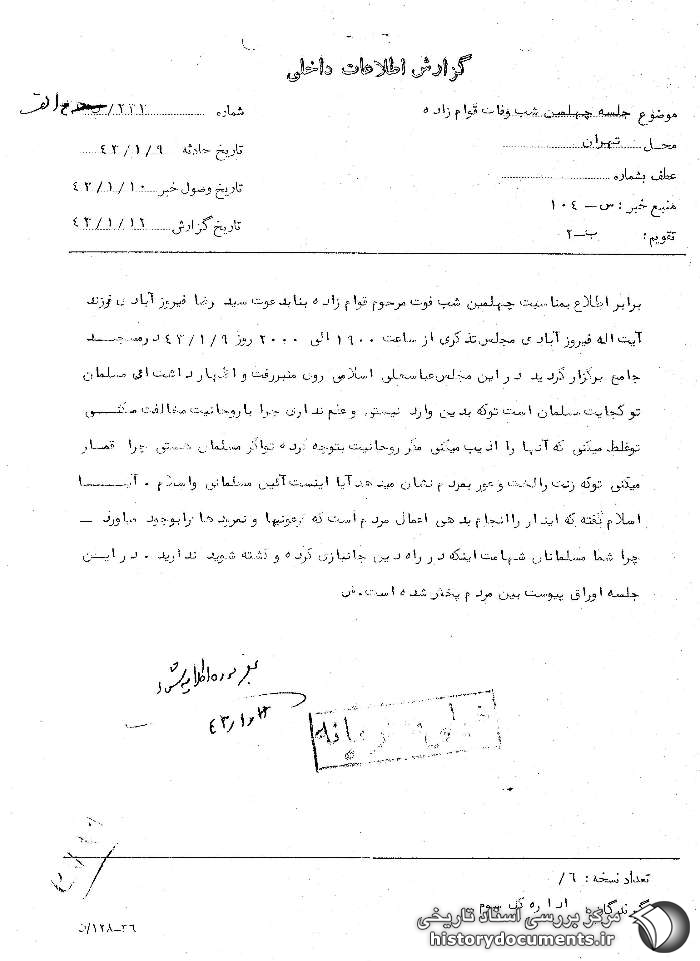 گزارش اطلاعات داخلی
موضوع جلسه چهلمین شب وفات قوام زاده
شماره ۲۳۲/
محل تهران
تاریخ حادثه ۴۳/۱/۹
عطف بشماره
تاریخ وصول خبر ۴۳/۱/۱۰
منبع خبر : س - ۱۰۴
تاریخ گزارش ۴۳/۱/۱۲
تقویم: ب-۲
برابر اطلاع بمناسبت چهلمین شب فوت مرحوم قوام زاده بنا بدعوت سید رضا فیروز آبادی فرزند
آیت اله فیروز آبادی مجلس تذکری از ساعت ۱۹۰۰ الی ۲۰۰۰ روز ۴۳/۱/۹ در مسجد
جامع برگزار گردید در این مجلس عباسعلی اسلامی روی منبر رفت و اظهار داشت ای مسلمان
تو کجایت مسلمان است تو که بدین وارد نیستی و علم نداری چرا با روحانیت مخالفت میکنی
تو غلط میکنی که آنها را اذیت میکنی مگر روحانیت بتو چه کرده تو اگر مسلمان هستی چرا قمار
میکنی تو که زنت را لخت و عور بمردم نشان میدهد آیا اینست آئین مسلمانی و اسلام . آیا
اسلام گفته که اینکار را انجام بدهی اعمال مردم است که فرعونها و نمرود ها را بوجود میاورد -
چرا شما مسلمانان شهامت اینکه در راه دین جانبازی کرده و کشته شوید ندارید . در این
جلسه اوراق پیوست بین مردم پخش شده است . ش
۴۳/۱/
تعداد نسخه : ۶/
گیرندگان اداره کل سوم
۳۶-۱۲۸/ن
مرکز بررسی اسناد تاریخی
historydocuments.ir